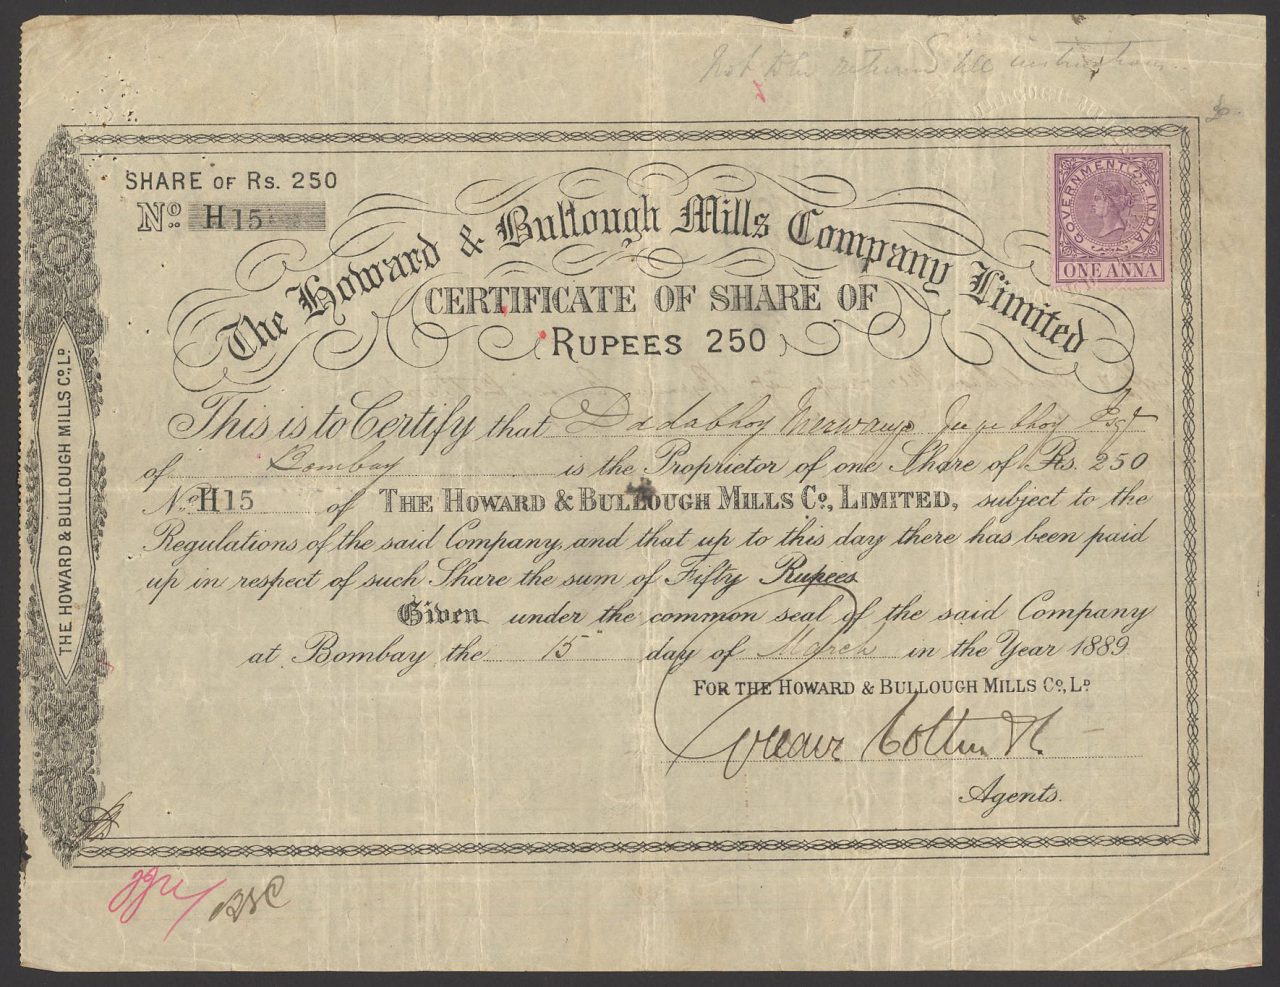 Not to be returned till instructions
SHARE OF Rs. 250
No. H15
GOVERNMENT OF INDIA
ONE ANNA
The Howard & Bullough Mills Company Limited
CERTIFICATE OF SHARE OF
RUPEES 250
THE HOWARD & BULLOUGH MILLS Co., Ld.
This is to Certify that Dadabhoy Merwanji Jeejeebhoy Esqr
of Bombay is the Proprietor of one Share of Rs. 250
No. H15 of THE HOWARD & BULLOUGH MILLS Co., LIMITED, subject to the
Regulations of the said Company, and that up to this day there has been paid
up in respect of such Share the sum of Fifty Rupees
Given under the common seal of the said Company
at Bombay the 15" day of March in the Year 1889
FOR THE HOWARD & BULLOUGH MILLS Co., Ld.
Agents.